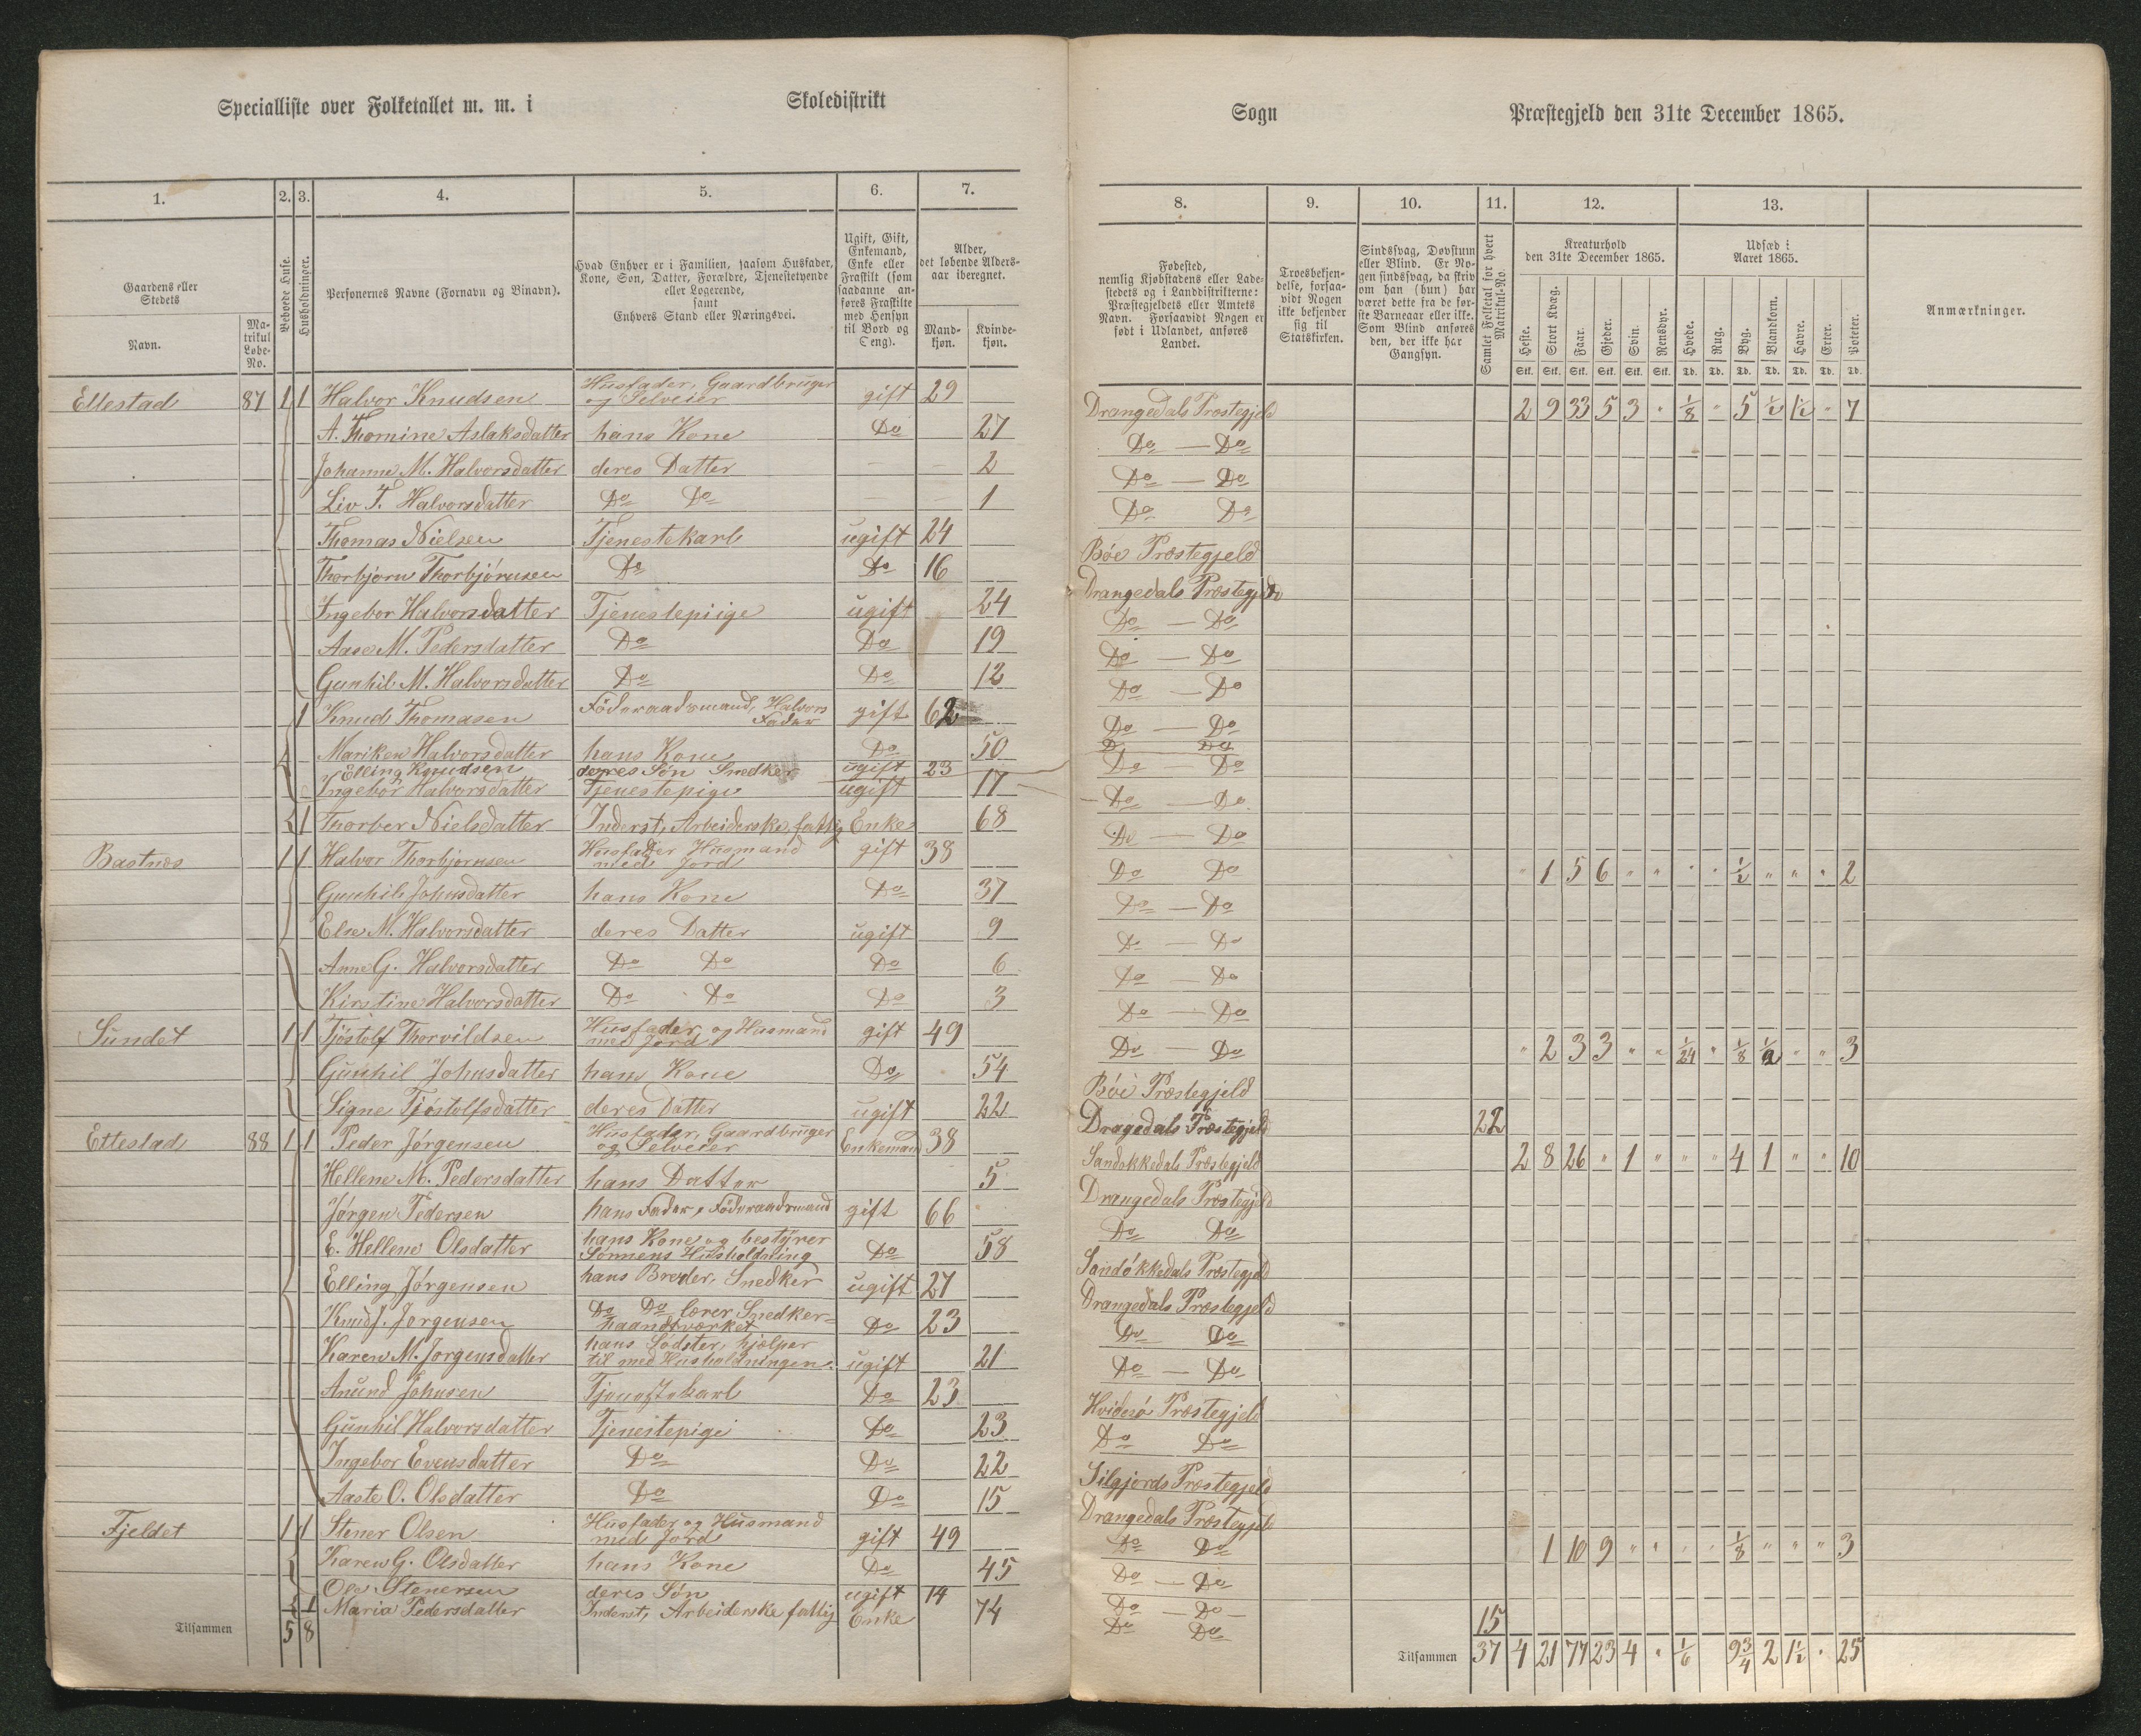 Specialliste over Folketallet m. m. i Skoledistrikt Sogn Præstegjeld den 31te December 1865.
1. 2. 3. 4. 5. 6. 7. 8. 9. 10. 11. 12. 13.
Gaardens eller Stedets
Navn.
Matrikul Løbe-No.
Beboede Huse.
Husholdninger.
Personernes Navne (Fornavn og Binavn).
Hvad Enhver er i Familien, saasom Husfader, Kone, Søn, Datter, Forældre, Tjenestetyende eller Logerende,
samt
Enhvers Stand eller Næringsvei.
Ugift, Gift, Enkemand, Enke eller Fraskilt (som saadanne anføres Fraskilte med Hensyn til Bord og Seng).
Alder, det løbende Alders-aar iberegnet.
Mandkjøn.
Kvindekjøn.
Fødested,
nemlig Kjøbstadens eller Ladestedets og i Landdistrikterne: Præstegjeldets eller Amtets Navn. Forsaavidt Nogen er født i Udlandet, anføres Landet.
Troesbekjendelse, forsaavidt Nogen ikke bekjender sig til Statskirken.
Sindssvag, Døvstum eller Blind. Er Nogen sindssvag, da skriv om han (hun) har været dette fra de første Barneaar eller ikke. Som Blind anføres den, der ikke har Gangsyn.
Samlet Folketal for hvert Matrikul-No.
Kreaturhold den 31te December 1865.
Heste. Stort Kvæg. Faar. Gjeder. Svin. Rensdyr.
Stk. Stk. Stk. Stk. Stk. Stk.
Udsæd i Aaret 1865.
Hvede. Rug. Byg. Blandkorn. Havre. Erter. Poteter.
Td. Td. Td. Td. Td. Td. Td.
Anmærkninger.
Ettestad 87 1 1 Halvor Knudsen Husfader, Gaardbruger og Selveier gift 29 Drangedals Præstegjeld 2 9 33 5 3 " 1/8 " 5 1/2 1 1/2 " 7
A. Thomine Aslaksdatter hans Kone Do 27 Do — Do
Johanne M. Halvorsdatter deres Datter 2 Do — Do
Liv T. Halvorsdatter Do Do 1 Do Do
Thomas Nielsen Tjenestekarl ugift 24 Bøe Præstegjeld
Thorbjørn Thorbjørnsen Do Do 16 Drangedals Præstegjeld
Ingebor Halvorsdatter Tjenestepiige ugift 24 Do — Do
Aase M. Pedersdatter Do Do 19 Do — Do
Gunhil M. Halvorsdatter Do Do 12 Do — Do
1 Knud Thomasen Föderaadsmand, Halvors Fader gift 62 Do — Do
Mariken Halvorsdatter hans Kone Do 50 Do Do
Elling Knudsen deres Søn Snedker ugift 23 Do Do
Ingebor Halvorsdatter Tjenestepige ugift 17 Do — Do
1 Thorber Nielsdatter Inderst, Arbeiderske fattig Enke 68 Do — Do
Bastnes 1 1 Halvor Thorbjørnsen Husfader Husmand med Jord gift 38 Do Do " 1 5 6 " " " " 1/2 " " " 2
Gunhil Johnsdatter hans Kone Do 37 Do — Do
Else M. Halvorsdatter deres Datter ugift 9 Do — Do
Anne G. Halvorsdatter Do Do Do 6 Do — Do
Kirstine Halvorsdatter Do Do Do 3 Do — Do
Sundet 1 1 Tjøstolf Thorvildsen Husfader og Husmand med Jord gift 49 Do — Do " 2 3 3 " " 1/24 " 1/8 1/2 " " 3
Gunhil Johnsdatter hans Kone Do 54 Bøe Præstegjeld
Signe Tjøstolfsdatter deres Datter ugift 22 Dragedals Præstegjeld 22
Ettestad 88 1 1 Peder Jørgensen Husfader, Gaardbruger og Selveier Enkemand 38 Sandøkkedals Præstegjeld 2 8 26 " 1 " " " 4 1 " " 10
Hellene M. Pedersdatter hans Datter 5 Drangedals Præstegjeld
Jørgen Pedersen hans Fader, Föderaadsmand gift 66 Do Do
E. Hellene Olsdatter hans Kone og bestyrer Sønnens Husholdning Do 58 Sandøkkedals Præstegjeld
Elling Jørgensen hans Broder, Snedker ugift 27 Drangedals Præstegjeld
Knud J. Jørgensen Do Do lærer Snedkerhaandværket Do 23 Do Do
Karen M. Jørgensdatter hans Södster, hjelper til med Husholdningen. ugift 21 Do — Do
Anund Johnsen Tjenestekarl Do 23 Hvidesø Præstegjeld
Gunhil Halvorsdatter Tjenestepige Do 23 Do Do
Ingebor Evensdatter Do Do 22 Silgjords Præstegjeld
Aaste O. Olsdatter Do Do 15 Drangedals Præstegjeld
Fjeldet 1 1 Stener Olsen Husfader og Husmand med Jord gift 49 Do Do 1 10 9 " " " " 1/8 " " " 3
Karen G. Olsdatter hans Kone Do 45 Do — Do
Ole Stenersen deres Søn ugift 14 Do — Do
1 Maria Pedersdatter Inderst, Arbeiderske fattig Enke 74 Do Do 15
Tilsammen 5 8 Tilsammen 37 4 21 77 23 4 " 1/6 9 3/4 2 1 1/2 " 25